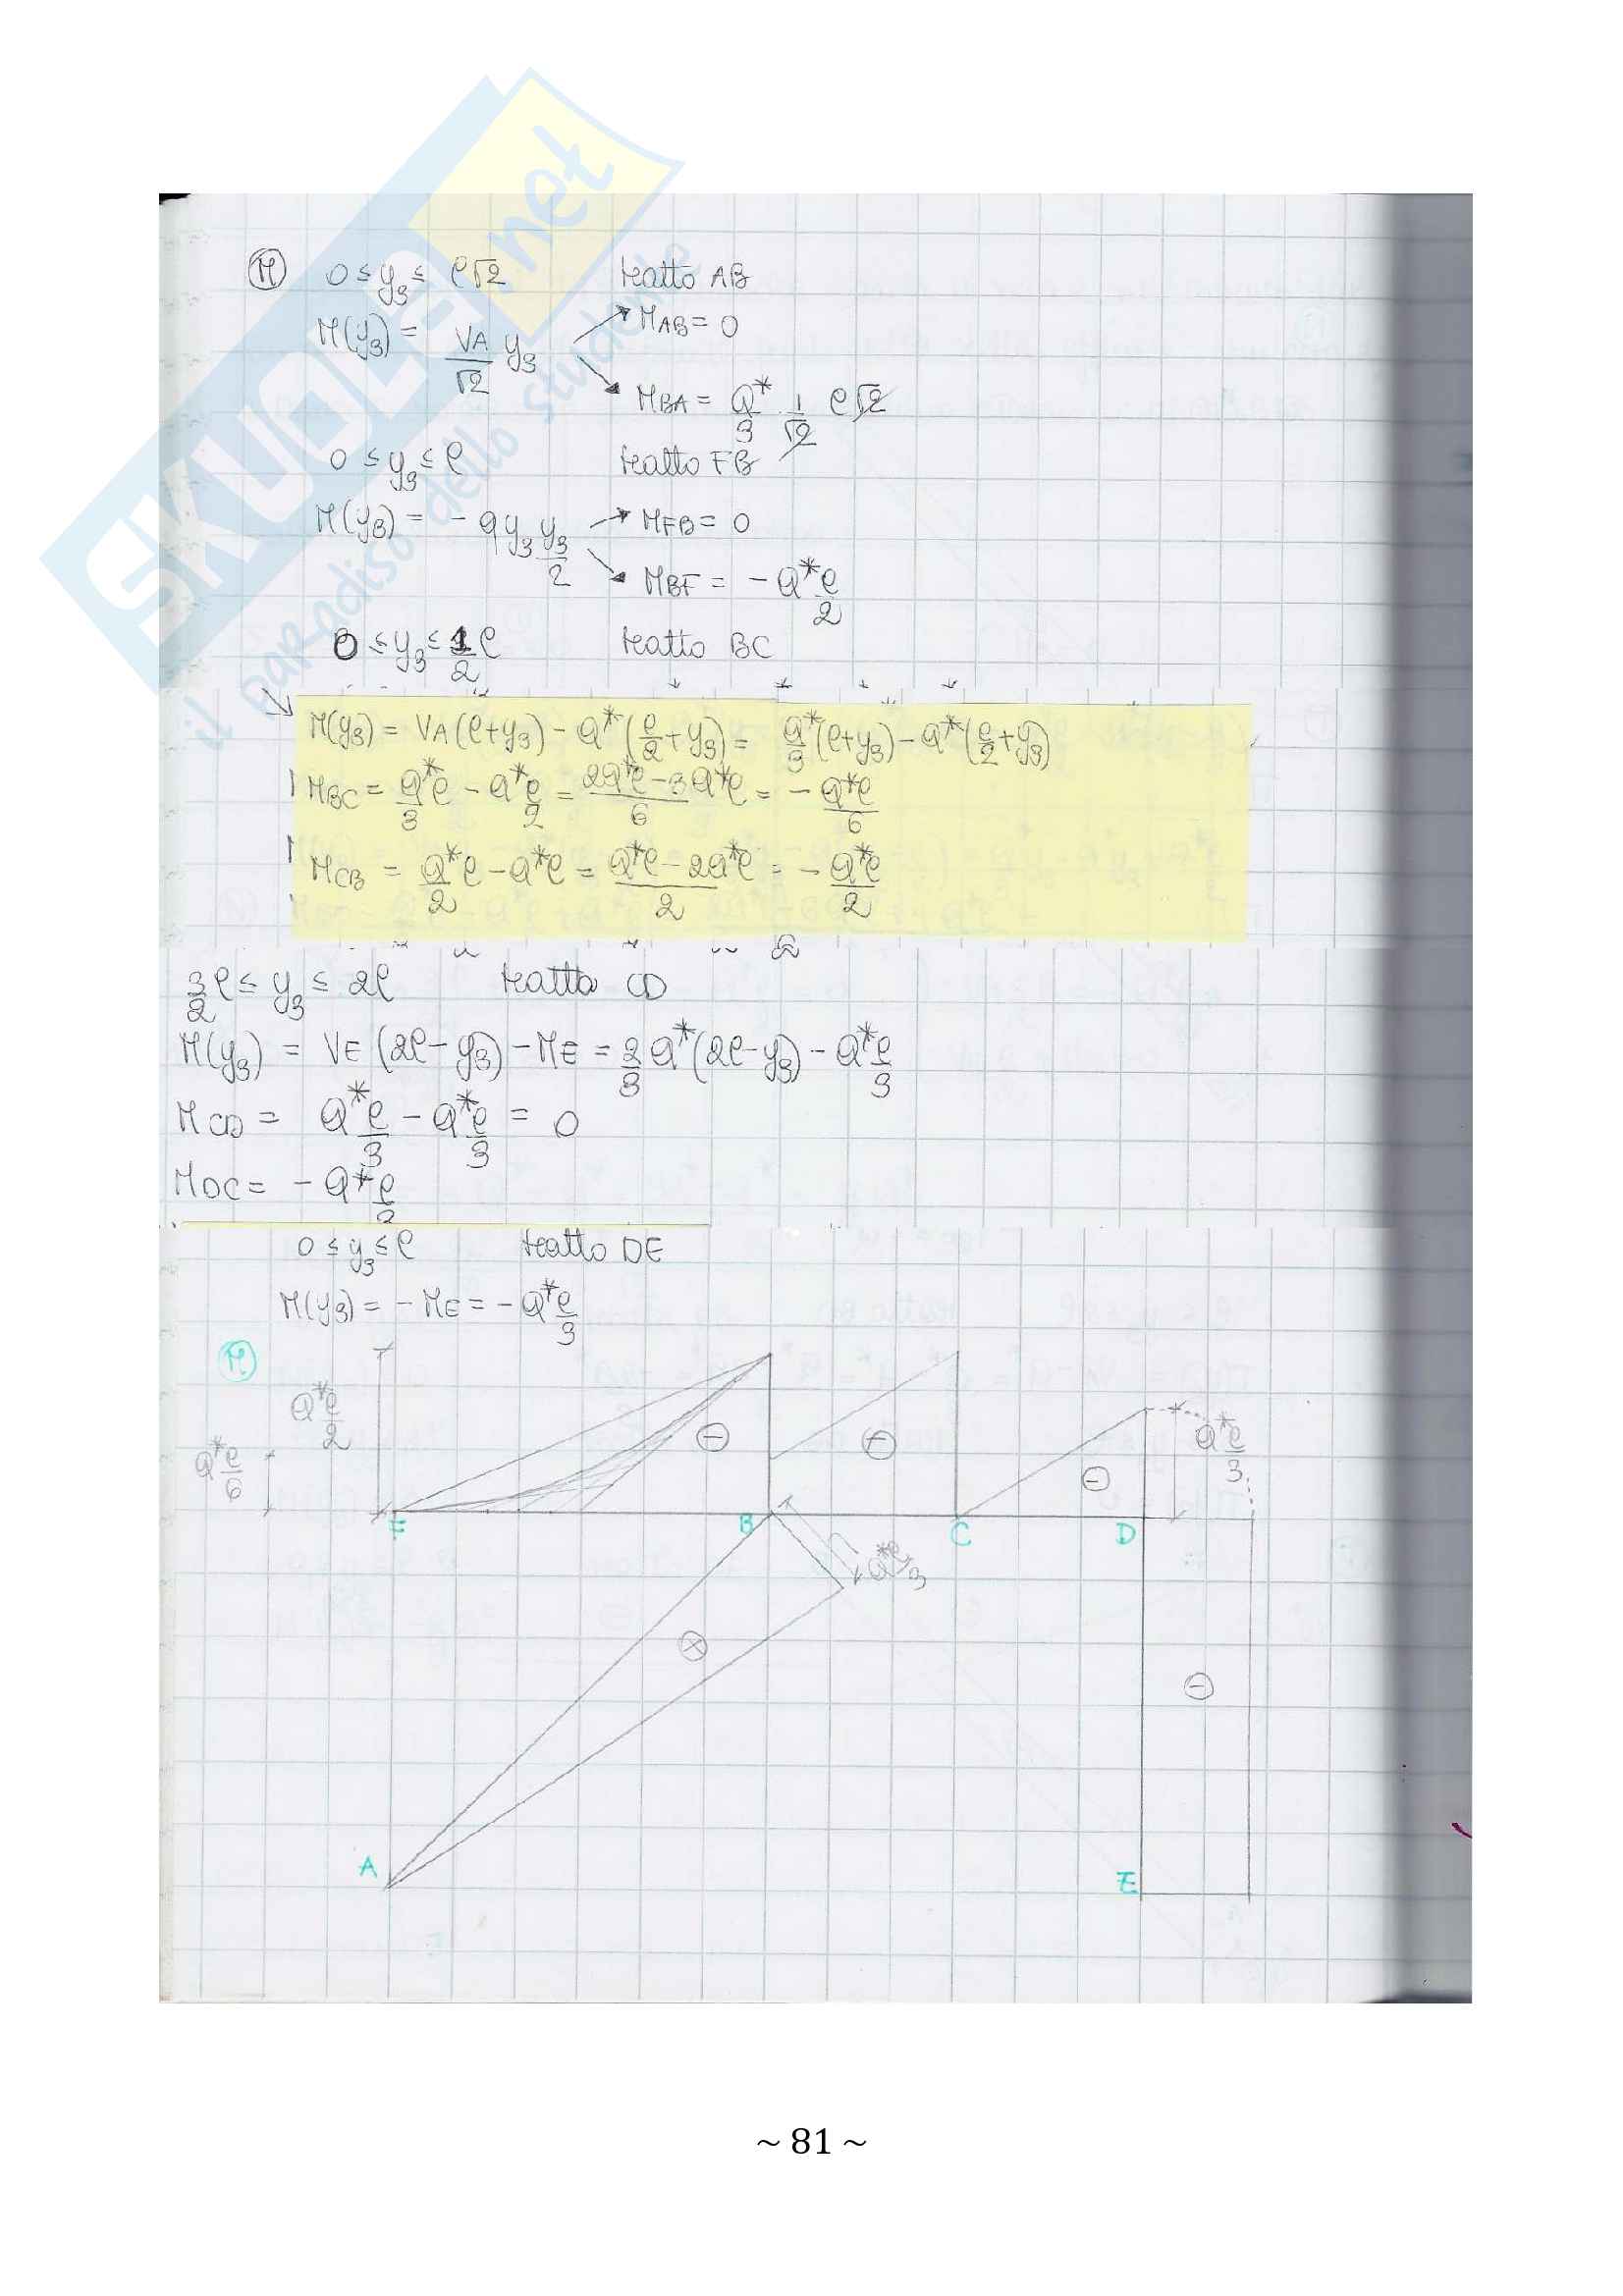 SKUOLA.net
il paradiso dello studente
M 0 ≤ y₃ ≤ l√2 tratto AB
M(y₃) = VA/√2 y₃
MAB = 0
MBA = Q*/3 1/√2 l√2
0 ≤ y₃ ≤ l tratto FB
M(y₃) = - q y₃ y₃/2
MFB = 0
MBF = - Q*l/2
0 ≤ y₃ ≤ 1/2 l tratto BC
M(y₃) = VA(l+y₃) - Q*(l/2+y₃) = Q*/3(l+y₃) - Q*(l/2+y₃)
MBC = Q*l/3 - Q*l/2 = (2Q*l - 3Q*l)/6 = - Q*l/6
MCB = Q*l/2 - Q*l = (Q*l - 2Q*l)/2 = - Q*l/2
3/2 l ≤ y₃ ≤ 2l tratto CD
M(y₃) = VE(2l - y₃) - ME = 2/3 Q*(2l - y₃) - Q*l/3
MCD = Q*l/3 - Q*l/3 = 0
MDC = - Q*l/3
0 ≤ y₃ ≤ l tratto DE
M(y₃) = - ME = - Q*l/3
M
Q*l/2
Q*l/6
Q*l/3
F B C D
Q*l/3
A
E
~ 81 ~